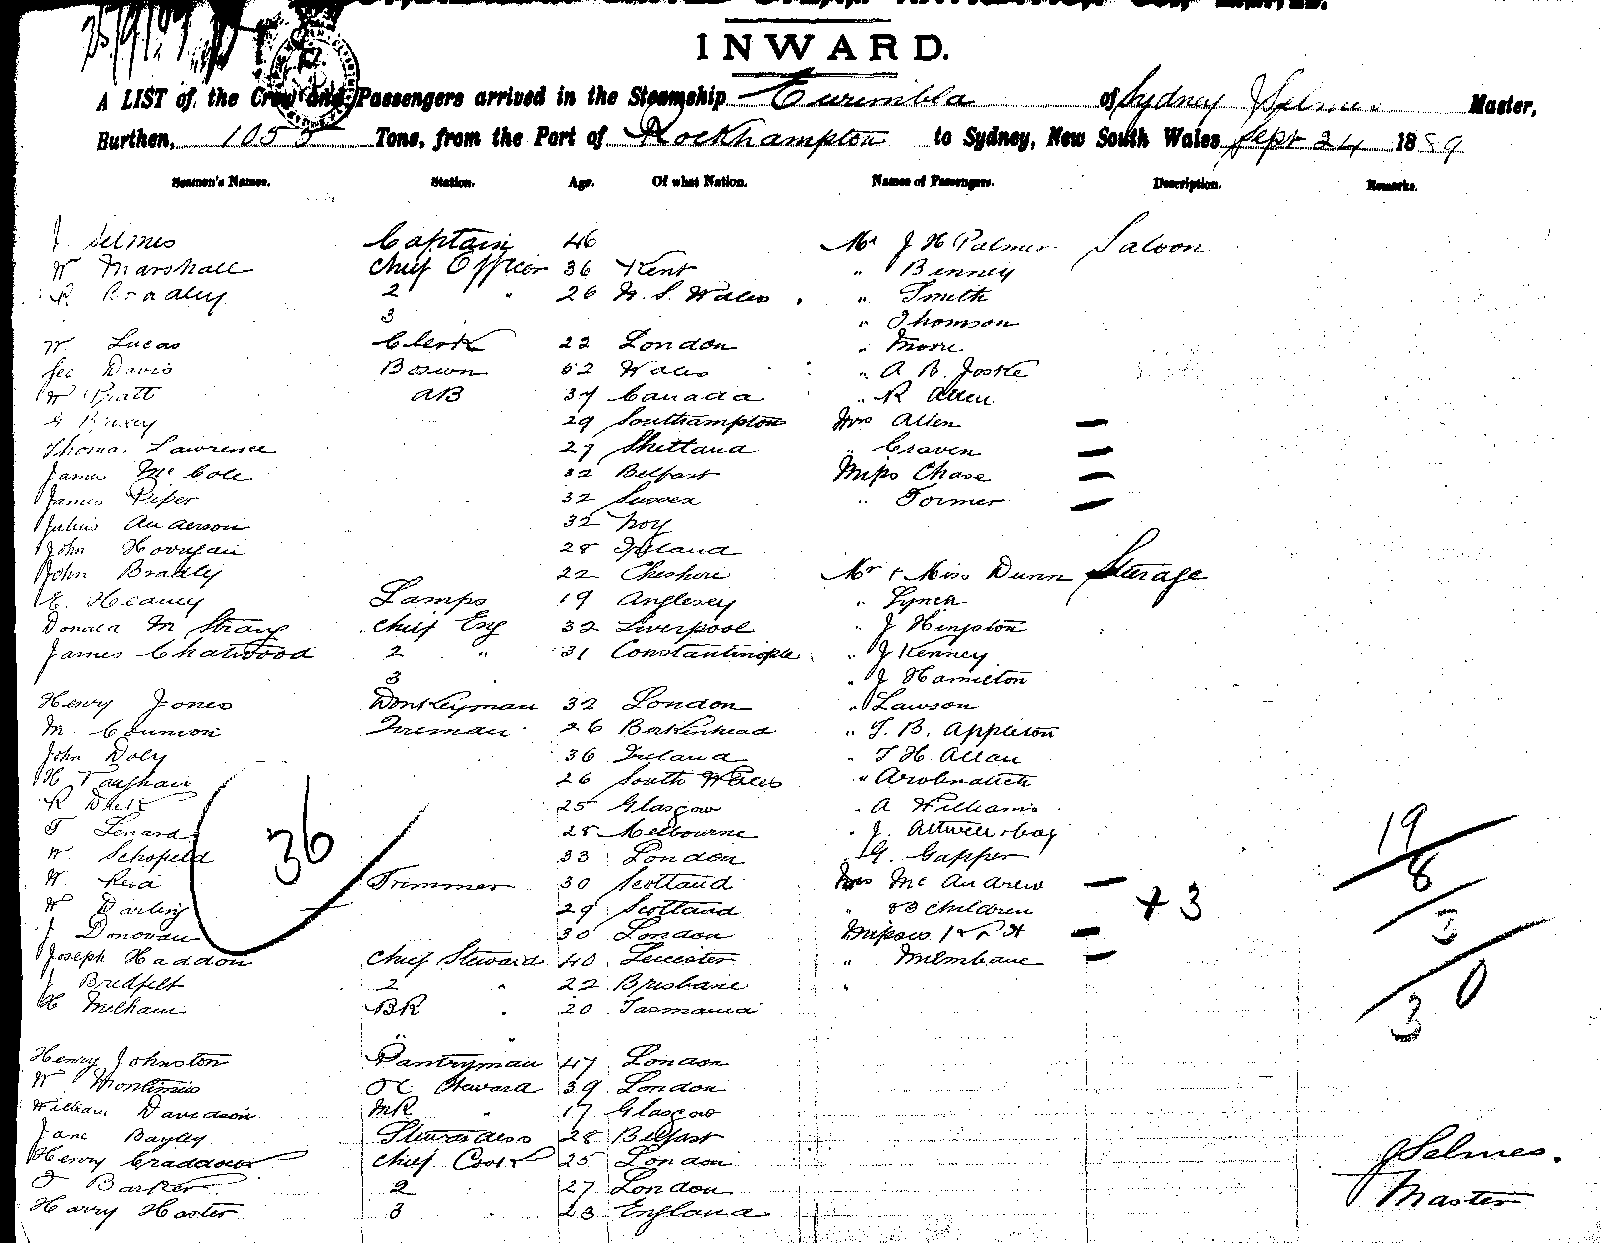 INWARD.
A LIST of the Crew and Passengers arrived in the Steamship Eurimbla of Sydney J Selmes Master,
Burthen, 1055 Tons, from the Port of Rockhampton to Sydney, New South Wales Sept 24 1889
Seamen's Names. Station. Age. Of what Nation. Names of Passengers. Description. Remarks.
J Selmes Captain 46 Mr J H Palmer Saloon
W Marshall Chief Officer 36 Kent " Benney
R Bradley 2 " 26 N. S. Wales " Smith
3 " Thomson
W Lucas Clerk 22 London "
Geo Davis Bosun 52 Wales " A B. Joske
W Pratt AB 37 Canada " R Allen
29 Southampton Mrs Allen —
Thomas Lawrence 27 Shetland " Craven —
James McCole 32 Belfast Miss Chase —
James Piper 32 Sussex " Tormer —
Julius Anderson 32 Noy
John 28 Ireland
John Bradley 22 Cheshire Mr & Miss Dunn Steerage
E. Heaney Lamps 19 Anglesey " Lynch
Donald M Strang Chief Eng 32 Liverpool " J Hingston
James Chatwood 2 " 31 Constantinople " J Kenney
3 " J Hamilton
Henry Jones Donkeyman 32 London " Lawson
M. Fireman 26 Birkenhead " T. B. Appleton
John Doly 36 Ireland " T H Allan
H Vaughan 26 South Wales "
R 25 Glasgow " A Williams
T Lenard 28 Melbourne " J.
W. Schofield 33 London " G. Gapper
W Reid Trimmer 30 Scotland Mrs McAndrew —
W Darling 29 Scotland " & 3 children + 3
J Donovan 30 London Misses —
Joseph Haddon Chief Steward 40 Leicester " —
J Bredfelt 2 " 22 Brisbane "
H Melham BR " 20 Tasmania
Henry Johnston Pantryman 47 London
W Steward 39 London
William Davidson MR " 17 Glasgow
Jane Bayley Stewardess 28 Belfast
Henry Craddock Chief Cook 25 London
Barker 2 27 London
Harry Haster 3 23 England
36
19
8
3
30
J Selmes.
Master